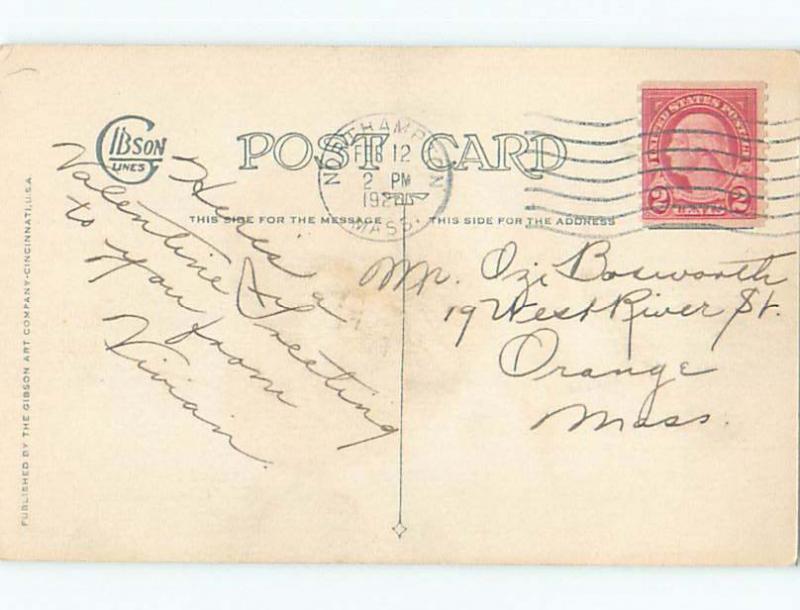 GIBSON
LINES
POST CARD
NORTHAMPTON
FEB 12
2 PM
MASS.
UNITED STATES POSTAGE
2 2
THIS SIDE FOR THE MESSAGE
THIS SIDE FOR THE ADDRESS
Here's a
Valentine Greeting
to you from
Vivian.
Mr. Ozi Bosworth
19 West River St.
Orange
Mass.
PUBLISHED BY THE GIBSON ART COMPANY-CINCINNATI, U.S.A.